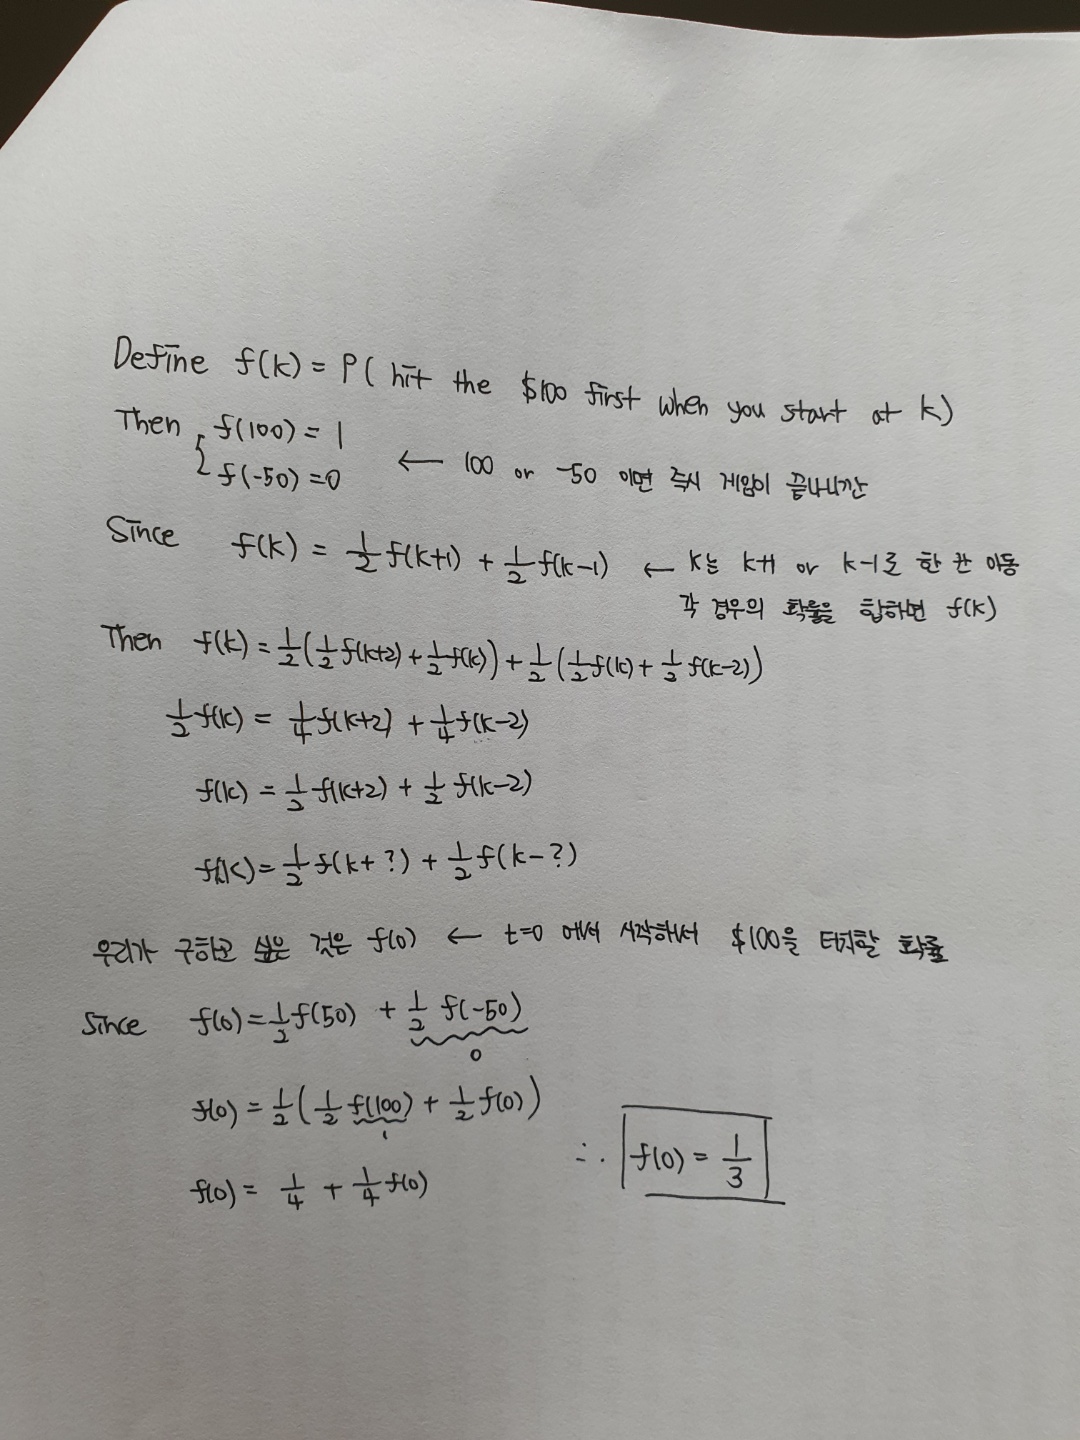 Define f(k) = P( hit the $100 first when you start at k)
Then { f(100) = 1
f(-50) = 0 ← 100 or -50 이면 즉시 게임이 끝나니깐
Since f(k) = 1/2 f(k+1) + 1/2 f(k-1) ← k는 k+1 or k-1로 한 칸 이동
각 경우의 확률을 합하면 f(k)
Then f(k) = 1/2(1/2 f(k+2) + 1/2 f(k)) + 1/2(1/2 f(k) + 1/2 f(k-2))
1/2 f(k) = 1/4 f(k+2) + 1/4 f(k-2)
f(k) = 1/2 f(k+2) + 1/2 f(k-2)
f(k) = 1/2 f(k+?) + 1/2 f(k-?)
우리가 구하고 싶은 것은 f(0) ← t=0 에서 시작해서 $100을 터치할 확률
Since f(0) = 1/2 f(50) + 1/2 f(-50)
0
f(0) = 1/2(1/2 f(100) + 1/2 f(0))
1
f(0) = 1/4 + 1/4 f(0)
∴ f(0) = 1/3